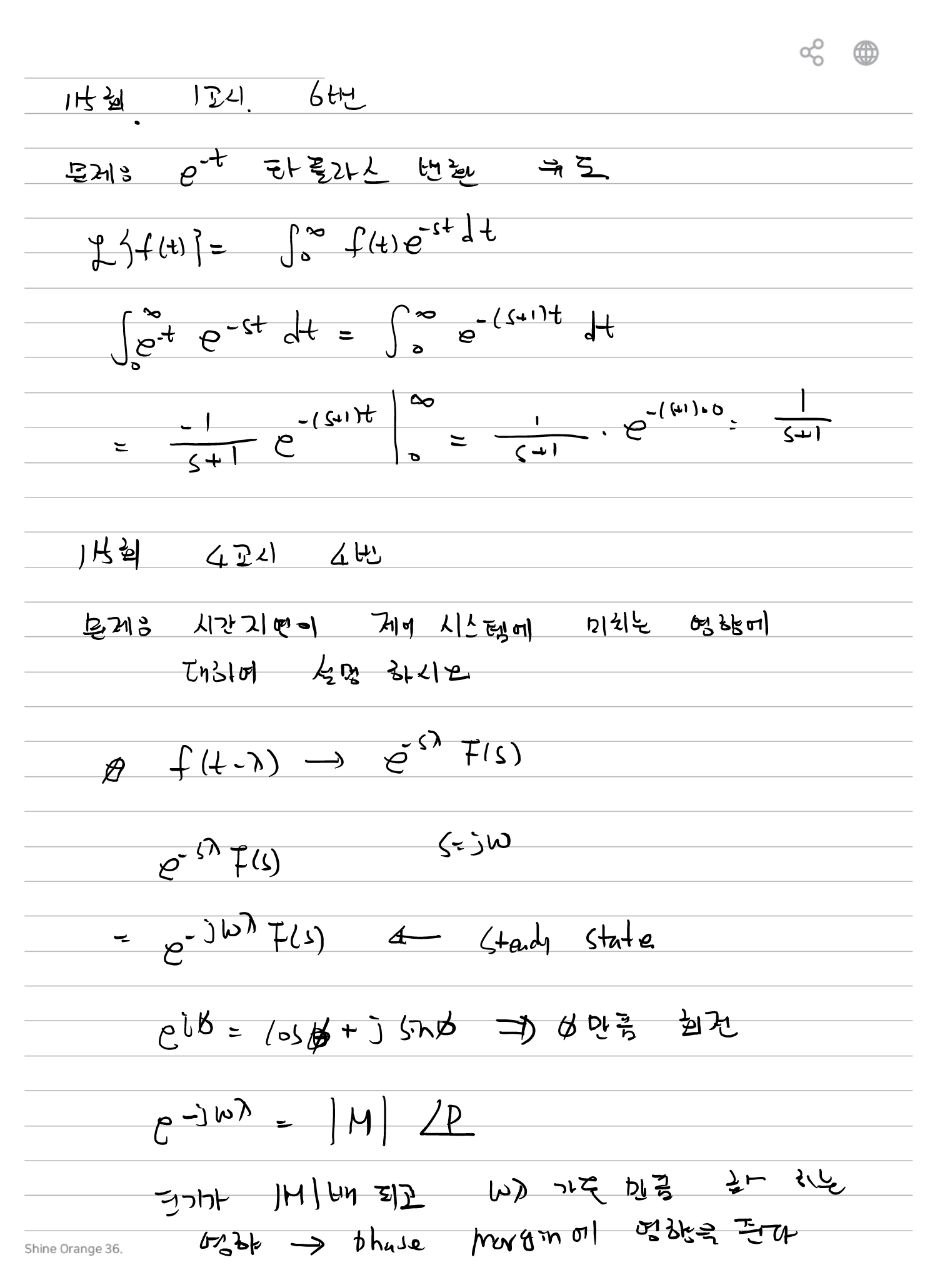 115회. 1교시. 6번
문제) e^-t 라플라스 변환 유도
ℒ{f(t)} = ∫₀^∞ f(t)e^-st dt
∫₀^∞ e^-t e^-st dt = ∫₀^∞ e^-(s+1)t dt
= -1/(s+1) e^-(s+1)t |₀^∞ = 1/(s+1) · e^-(s+1)·0 = 1/(s+1)
115회 4교시 4번
문제) 시간지연이 제어 시스템에 미치는 영향에
대하여 설명 하시오
f(t-λ) → e^-sλ F(s)
e^-sλ F(s) s=jω
= e^-jωλ F(s) ← steady state
e^jϕ = cosϕ + j sinϕ ⇒ ϕ만큼 회전
e^-jωλ = |M| ∠P
크기가 |M|배 되고 ωλ 각도 만큼
영향 → phase margin에 영향을 준다
Shine Orange 36.